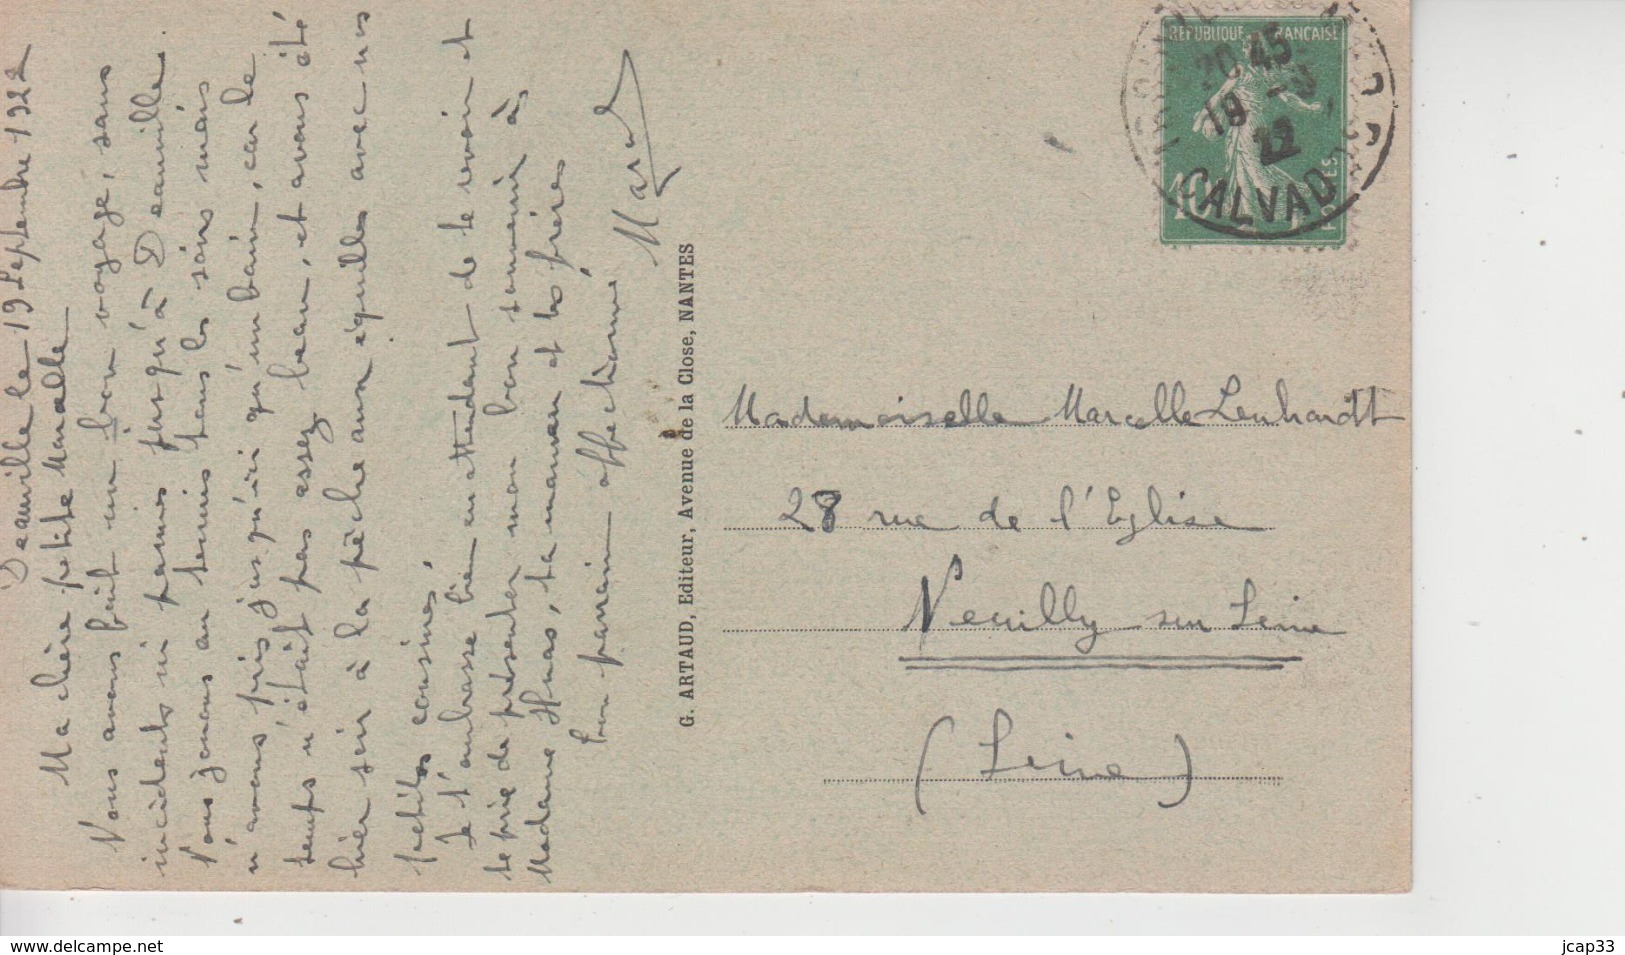 Deauville le 19 Septembre 1922
Ma chère petite Marcelle
Nous avons fait un bon voyage, sans
incidents ni pannes jusqu'à Deauville.
Nous jouons au tennis tous les soirs mais
n'avons pris jusqu'ici qu'un bain, car le
temps n'était pas assez beau, et avons été
hier soir à la pêche aux équilles avec nos
petites cousines.
Je t'embrasse bien en attendant de te revoir et
te prie de présenter mon bon souvenir à
Madame Huas, ta maman et tes frères
Ton parrain affectionné,
Marcel
G. ARTAUD, Editeur, Avenue de la Close, NANTES
REPUBLIQUE FRANÇAISE
10
POSTES
20 45
19 -9
22
CALVADOS
Mademoiselle Marcelle Lenhardt
28 rue de l'Eglise
Neuilly sur Seine
(Seine)
www.delcampe.net
jcap33